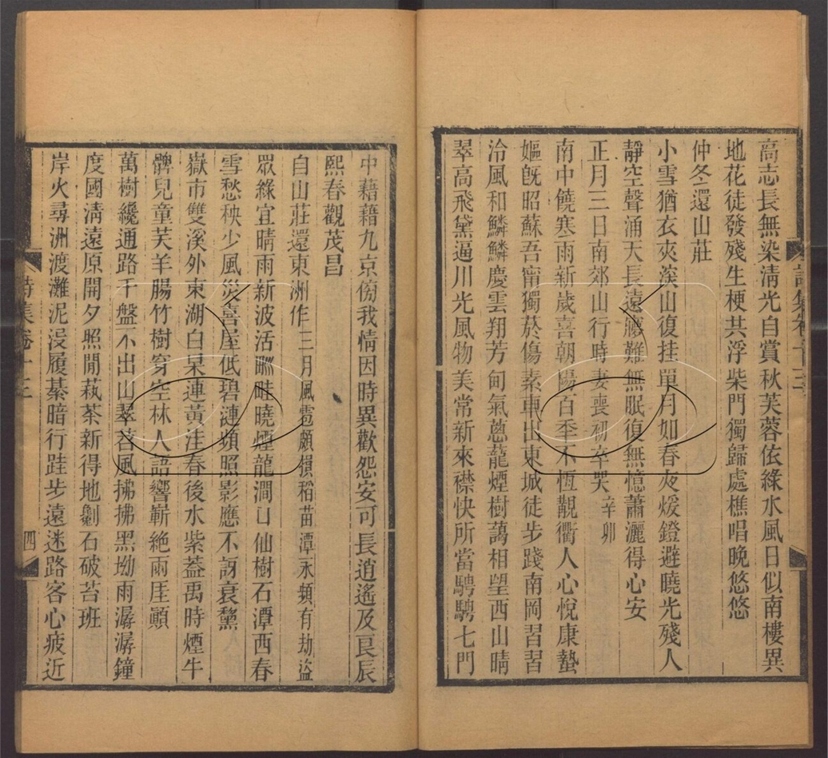 高志長無染清光自賞秋芙蓉依綠水風日似南樓異
地花徒發殘生梗共浮柴門獨歸處樵唱晚悠悠
仲冬還山莊
小雪猶衣夾溪山復挂單月如春夜煖鐙避曉光殘人
靜空聲涌天長遠難無眠復無憶蕭灑得心安
正月三日南郊山行時妻喪初卒哭辛卯
南中饒寒雨新歲喜朝陽百季不恆觀衢人心悅康蟄
嫗旣昭蘇吾甯獨菸傷素車出東城徒步踐南岡習習
泠風和鱗鱗慶雲翔芳甸氣蔥蘢煙樹藹相望西山晴
翠高飛黛逼川光風物美常新來襟快所當騁騁七門
詩集卷十三
中藉藉九京傷我情因時異歡怨安可長逍遙及良辰
熙春觀茂昌
自山莊還東洲作三月風雹頗損稻苗潭永頻有劫盜
眾綠宜晴雨新波活晦曉煙龍澗口仙樹石潭西春
雪愁秧少風災喜屋低碧漣頻照影應不訝衰黧
嶽市雙溪外東湖白杲連黃注春後水紫蓋禹時煙牛
髀兒童芙羊腸竹樹穿空林人語響嶄絶雨厓顚
萬樹纔通路千盤不出山翠苔風拂拂黑坳雨潺潺鐘
度國清遠原開夕照閒萩茶新得地劚石破苔班
岸火尋洲渡灘泥浸履綦暗行跬步遠迷路客心疲近
詩集卷十三
四